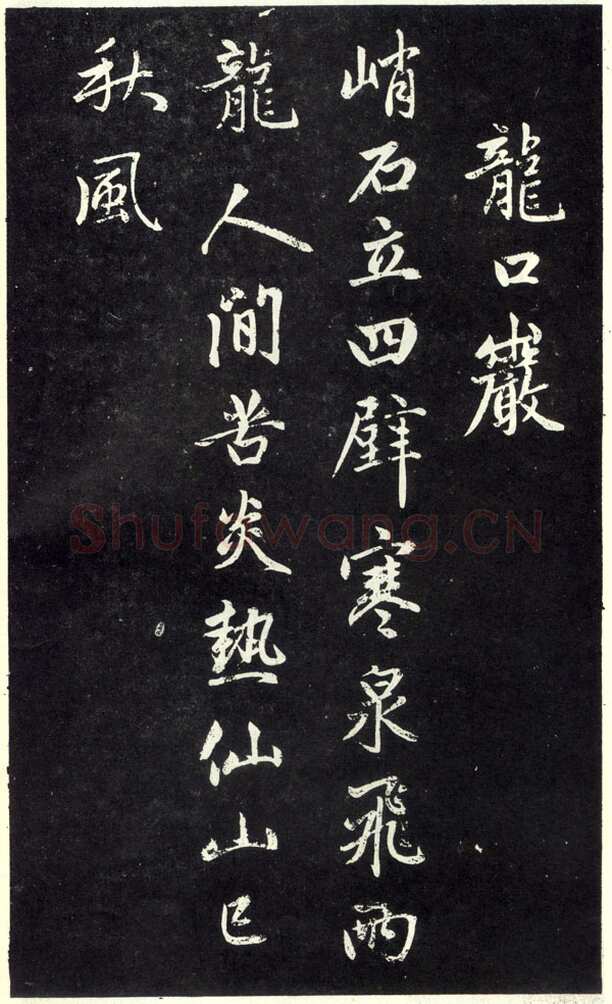 龍口巖
峭石立四壁寒泉飛兩
龍人間苦炎熱仙山已
秋風
Shufawang.CN